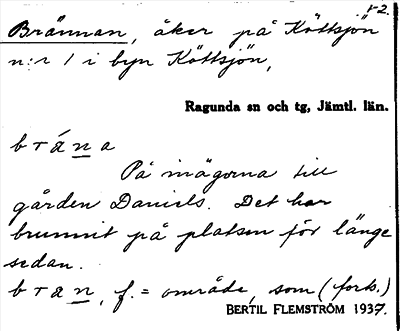 1-2.
Brännan, åker på Köttsjön
n:r 1 i byn Köttsjön,
Ragunda sn och tg, Jämtl. län.
bräna
På inägorna till
gården Daniels. Det har
brunnit på platsen för länge
sedan.
bran, f. = område, som (forts.)
BERTIL FLEMSTRÖM 1937.